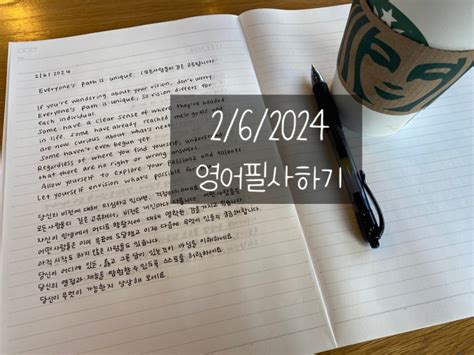 2|6|2024
Everyone's path is unique. (모든사람들의 길은 고유합니다)
If you're wondering about your vision, don't worry.
Everyone's Path is unique, so vision differs for
each individual.
Some have a clear sense of where they're headed
in life, some have already reached their goals and
are now curious about what's next
some haven't even begun yet.
Regardless of where you find yourself, understand
that there are no right or wrong answers.
Allow yourself to explore your passions and talents
Let yourself envision what's possible for
2/6/2024
영어필사하기
당신의 비전에 대해 걱정하지
모든사람들의 길은 고유해서, 비전은
자신이 인생에서 어디로 향할지에 대해 명확한 감을 가지고 있습니다.
어떤사람들은 이미 목표에 도달했고 이제 다음에 무엇이 있을지 궁금해합니다.
아직 시작도 하지 않은 사람들도 있습니다.
당신이 어디에 있든, 옳고 그른 답이 있는것이 아님을 이해하세요.
당신의 열정과 재능을 탐험할 수 있도록 스스로를 허락하세요.
당신이 무엇이 가능한지 상상해 보세요.